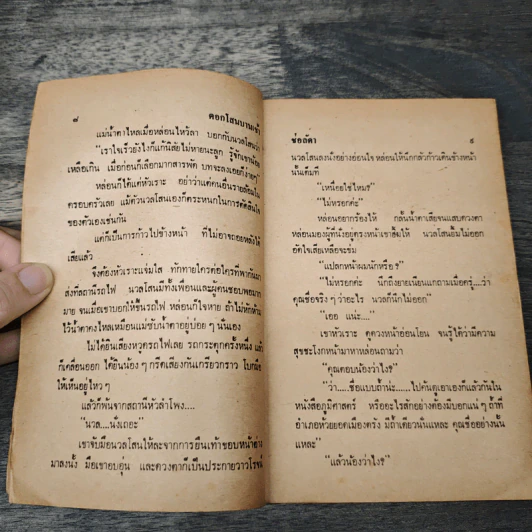 ๘ ดอกโสนบานเช้า
แม่น้ำตาไหลเมื่อหล่อนไหว้ลา บอกกับนวลโสนว่า
"เราใจเร็วยังไงก็แก้นิสัยไม่หายนะลูก รู้จักเขาน้อย
เหลือเกิน เมื่อก่อนก็เลือกมากสารพัด บทจะลงเอยก็ง่ายๆ"
หล่อนก็ได้แต่หัวเราะ อย่าว่าแต่คนอื่นรายล้อมใน
ครอบครัวเลย แม้ตัวนวลโสนเองก็ตระหนกในการตัดสินใจ
ของตัวเองเช่นกัน
แต่ก็เป็นการก้าวไปข้างหน้า ที่ไม่อาจถอยหลังให้
เสียแล้ว
จึงต้องหัวเราะแจ่มใส ทักทายใครต่อใครที่พากันมา
ส่งที่สถานีรถไฟ นวลโสนมีทั้งเพื่อนและผู้คนชอบพอมาก
มาย จนเมื่อเขาบอกให้ขึ้นรถไฟ หล่อนก็ใจหาย ถ้าไม่หักห้าม
ไว้น้ำตาคงไหลเหมือนแม่ซับน้ำตาอยู่บ่อย ๆ นั่นเอง
ไม่ได้ยินเสียงหวูดรถไฟเลย รถกระตุกครั้งหนึ่ง แล้ว
ก็เคลื่อนออก ได้ยินน้อง ๆ กรีดเสียงกันเกรียวกราว โบกมือ
ให้เห็นอยู่ไหว ๆ
แล้วก็พ้นจากสถานีหัวลำโพง....
"นวล....นั่งเถอะ"
เขาจับมือนวลโสนให้ละจากการยืนเท้าขอบหน้าต่าง
มาลงนั่ง มือเขาอบอุ่น และดวงตาก็เป็นประกายวาวโรจน์
ช่อลัดา ๙
นวลโสนลงนั่งอย่างอ่อนใจ หล่อนให้นึกกลัวก้าวเดินข้างหน้า
นั้นเต็มที
"เหนื่อยใช่ไหม?"
"ไม่หรอกค่ะ"
หล่อนอยากร้องไห้ กลั้นน้ำตาเสียจนแสบดวงตา
หล่อนมองผู้ที่นั่งอยู่ตรงหน้าเขายิ้มให้ นวลโสนยิ้มไม่ออก
อัดใจเสียเหลือจะข่ม
"แปลกหน้าผมนักหรือ?"
"ไม่หรอกค่ะ นึกถึงยายเนียนแกถามเมื่อครู่....ว่า
คุณชื่อจริง ๆ ว่าอะไร นวลก็นึกไม่ออก"
"เออ แน่ะ...."
เขาหัวเราะ ดูดวงหน้าอ่อนโยน จนรู้ได้ว่ามีความ
สุขชะโงกหน้ามาหาหล่อนถามว่า
"คุณตอบน้องว่าไง?"
"ว่า.....ชื่อแบบถ้ำน่ะ......ไปค้นดูเอาเองก็แล้วกันใน
หนังสือภูมิศาสตร์ หรืออะไรสักอย่างต้องมีบอกแน่ ๆ ถ้ำที่
อำเภอห้วยยอดเมืองตรัง มีถ้ำเดียวนั่นแหละ คุณชื่ออย่างนั้น
แหละ"
"แล้วน้องว่าไง?"